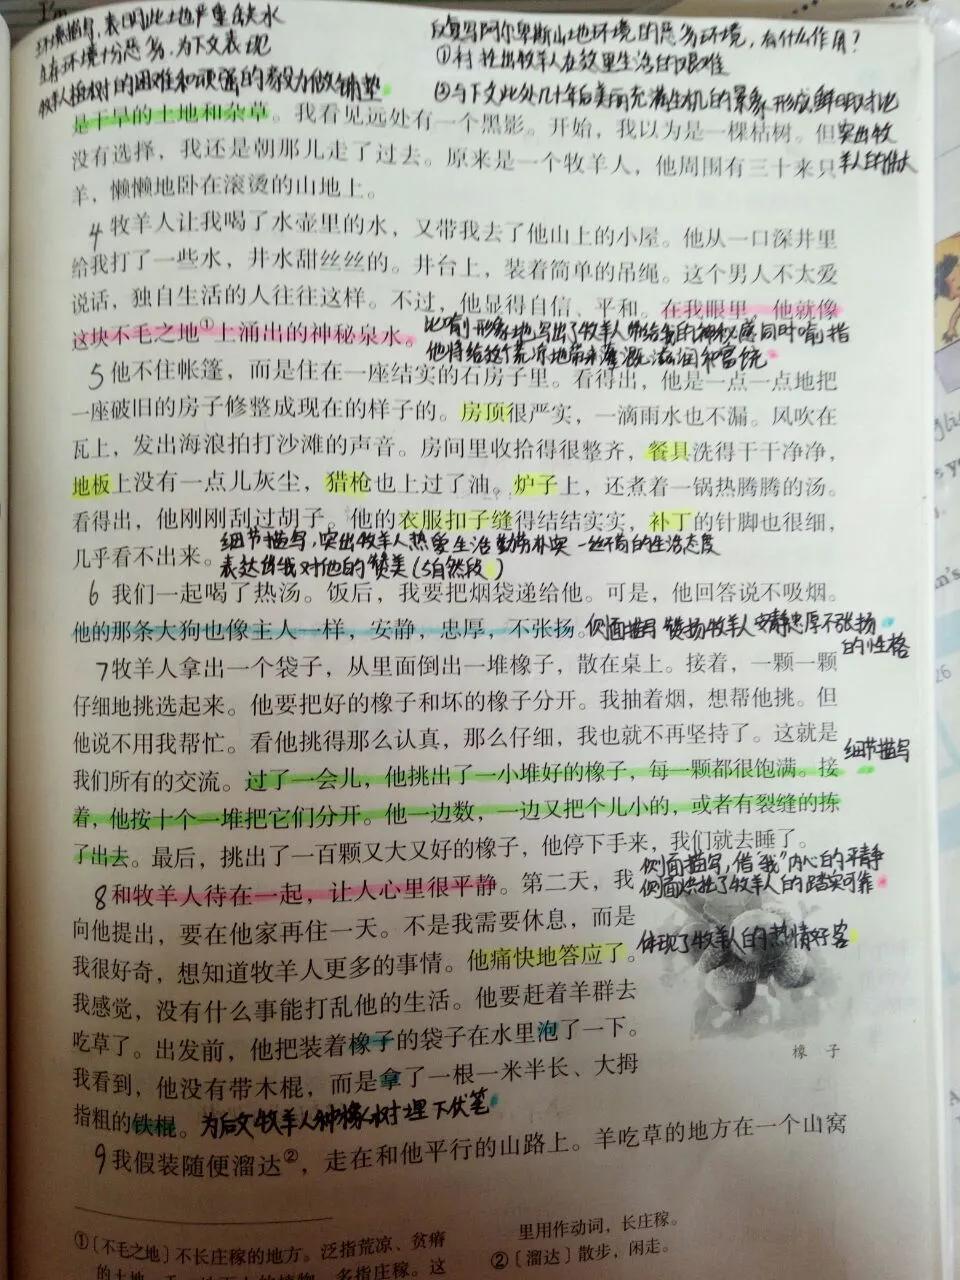 环境描写,表明此土地严重缺水
自在环境十分恶劣,为下文表现
牧羊人植树的困难和顽强的毅力做铺垫
反复写阿尔卑斯山地环境的恶劣环境,有什么作用?
①衬托出牧羊人在这里生活的艰难
②与下文此处几十年后美丽充满生机的景象形成鲜明对比
突出牧
羊人的伟大
是干旱的土地和杂草。我看见远处有一个黑影。开始,我以为是一棵枯树。但
没有选择,我还是朝那儿走了过去。原来是一个牧羊人,他周围有三十来只
羊,懒懒地卧在滚烫的山地上。
4 牧羊人让我喝了水壶里的水,又带我去了他山上的小屋。他从一口深井里
给我打了一些水,井水甜丝丝的。井台上,装着简单的吊绳。这个男人不太爱
说话,独自生活的人往往这样。不过,他显得自信、平和。在我眼里,他就像
这块不毛之地①上涌出的神秘泉水。
比喻,形象地写出了牧羊人带给我的神秘感同时喻指
他将给这个荒凉地带来灌溉滋润和富饶
5 他不住帐篷,而是住在一座结实的石房子里。看得出,他是一点一点地把
一座破旧的房子修整成现在的样子的。房顶很严实,一滴雨水也不漏。风吹在
瓦上,发出海浪拍打沙滩的声音。房间里收拾得很整齐,餐具洗得干干净净,
地板上没有一点儿灰尘,猎枪也上过了油。炉子上,还煮着一锅热腾腾的汤。
看得出,他刚刚刮过胡子。他的衣服扣子缝得结结实实,补丁的针脚也很细,
几乎看不出来。
细节描写,突出牧羊人热爱生活勤劳朴实一丝不苟的生活态度
表达出我对他的赞美(5自然段)
6 我们一起喝了热汤。饭后,我要把烟袋递给他。可是,他回答说不吸烟。
他的那条大狗也像主人一样,安静,忠厚,不张扬。
侧面描写 赞扬牧羊人安静忠厚不张扬
的性格
7 牧羊人拿出一个袋子,从里面倒出一堆橡子,散在桌上。接着,一颗一颗
仔细地挑选起来。他要把好的橡子和坏的橡子分开。我抽着烟,想帮他挑。但
他说不用我帮忙。看他挑得那么认真,那么仔细,我也就不再坚持了。这就是
我们所有的交流。过了一会儿,他挑出了一小堆好的橡子,每一颗都很饱满。接
细节描写
着,他按十个一堆把它们分开。他一边数,一边又把个儿小的,或者有裂缝的拣
了出去。最后,挑出了一百颗又大又好的橡子,他停下手来,我们就去睡了。
8 和牧羊人待在一起,让人心里很平静。第二天,我
侧面描写,借“我”内心的平静
侧面烘托了牧羊人的踏实可靠
向他提出,要在他家再住一天。不是我需要休息,而是
我很好奇,想知道牧羊人更多的事情。他痛快地答应了。
体现了牧羊人的热情好客
我感觉,没有什么事能打乱他的生活。他要赶着羊群去
吃草了。出发前,他把装着橡子的袋子在水里泡了一下。
橡 子
我看到,他没有带木棍,而是拿了一根一米半长、大拇
指粗的铁棍。
为后文牧羊人种橡树埋下伏笔
9 我假装随便溜达②,走在和他平行的山路上。羊吃草的地方在一个山窝
①〔不毛之地〕不长庄稼的地方。泛指荒凉、贫瘠
里用作动词,长庄稼。
②〔溜达〕散步,闲走。